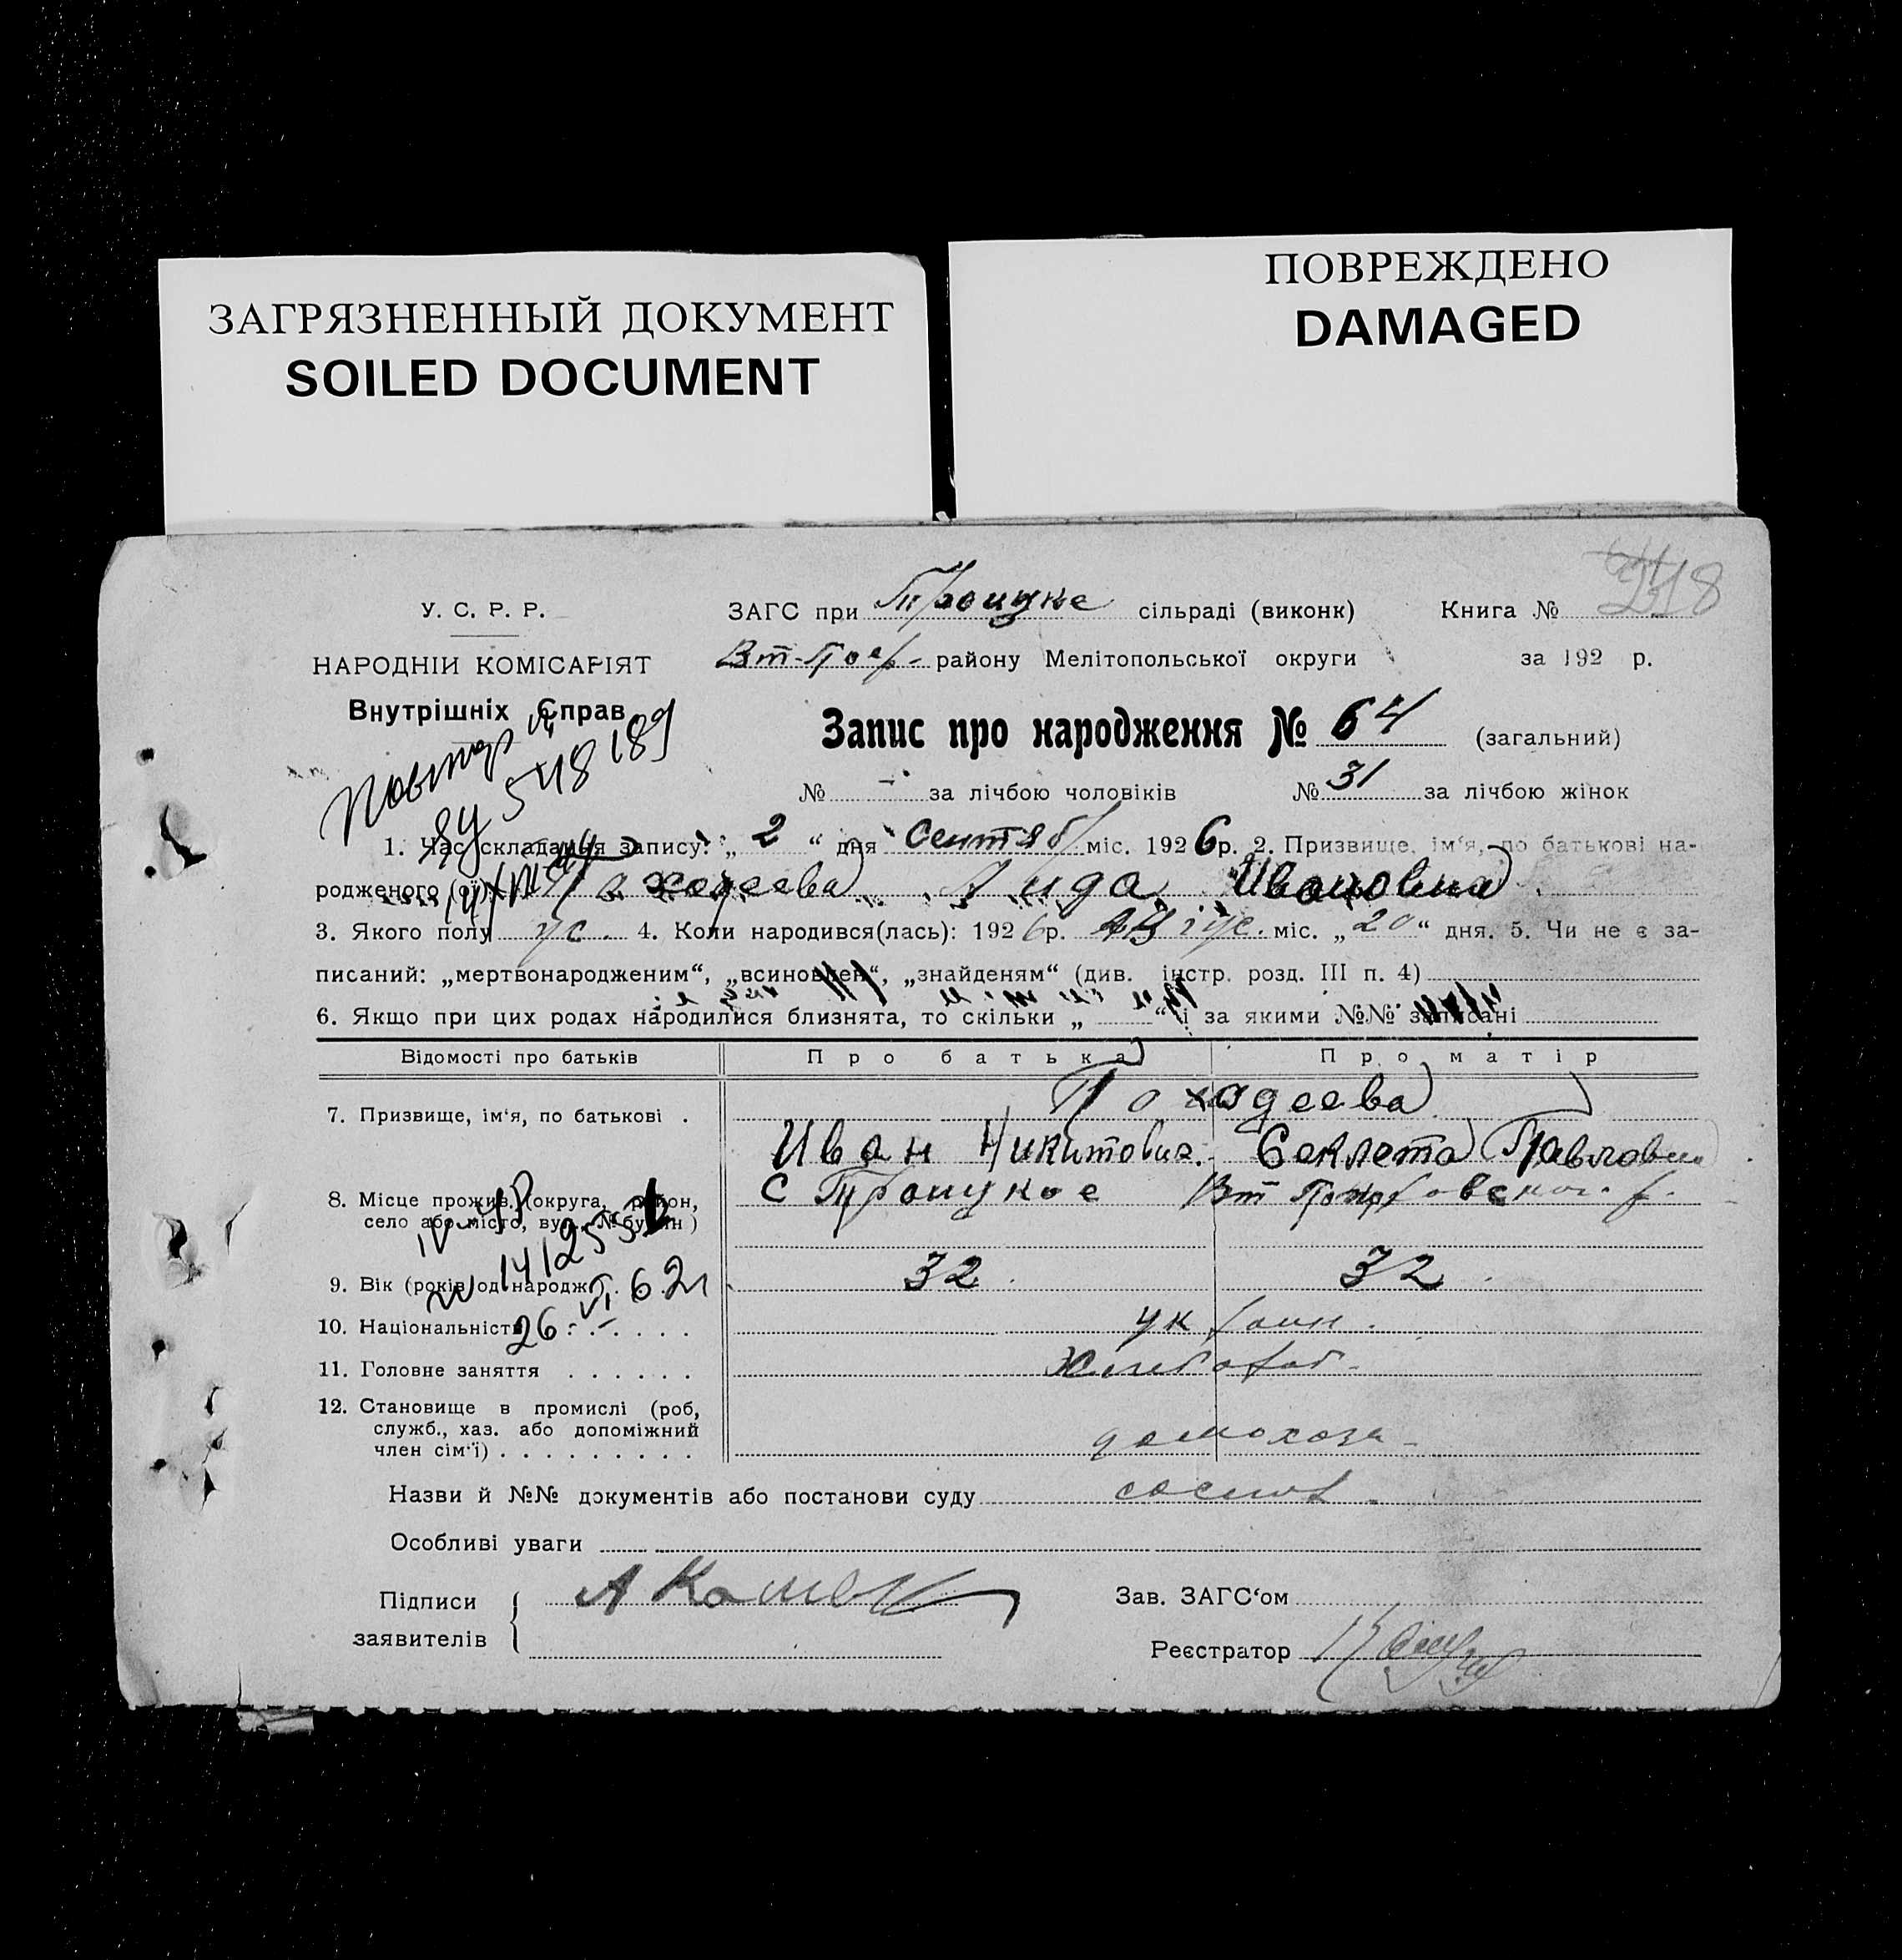 ЗАГРЯЗНЕННЫЙ ДОКУМЕНТ
SOILED DOCUMENT
ПОВРЕЖДЕНО
DAMAGED
У. С. Р. Р.
НАРОДНІЙ КОМІСАРІЯТ
Внутрішніх Справ
ЗАГС при Троицке сільраді (виконк)
Книга №
району Мелітопольської округи
за 192 р.
Запис про народження № 64 (загальний)
№ - за лічбою чоловіків № 31 за лічбою жінок
1. Час складання запису: „ 2 “ дня Сентяб міс. 192 6 р. 2. Призвище, ім'я, по батькові на-
родженого (ої) Походеева Лида Ивановна
3. Якого полу 4. Коли народився(лась): 192 6 р. міс. „ 20 “ дня. 5. Чи не є за-
писаний: „мертвонародженим“, „всиновлен“, „знайденям“ (див. інстр. розд. III п. 4)
6. Якщо при цих родах народилися близнята, то скільки „ “ і за якими №№ записані
Відомості про батьків Про батька Про матір
7. Призвище, ім'я, по батькові . Походеева
Иван Никитович. Секлета Павловна
8. Місце прожив. (округа, район, село або місто, вул., № будин ) с Троицкое Вт Покровског. р.
9. Вік (років од народж.) 32 . 32 .
26 VI 62
10. Національність . . . . . украин .
11. Головне заняття . . . . . . Хлебороб-
12. Становище в промислі (роб,
служб., хаз. або допоміжний
член сім'ї) . . . . . . . . . домохоз
Назви й №№ документів або постанови суду
Особливі уваги
Підписи
заявителів
Зав. ЗАГС'ом
Реєстратор